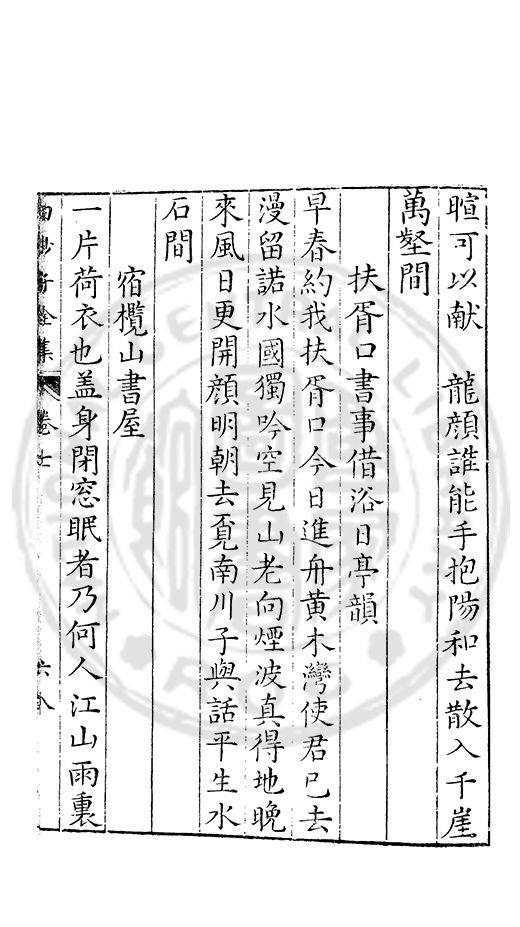 暄可以献　龍顔誰能手抱陽和去散入千崖
萬壑間
扶胥口書事借浴日亭韻
早春約我扶胥口今日進舟黄木灣使君已去
漫留諾水國獨吟空見山老向煙波真得地晚
來風日更開顔明朝去覔南川子與話平生水
石間
宿欖山書屋
一片荷衣也盖身閉窓眠者乃何人江山雨裏
白沙子全集　卷七　六八